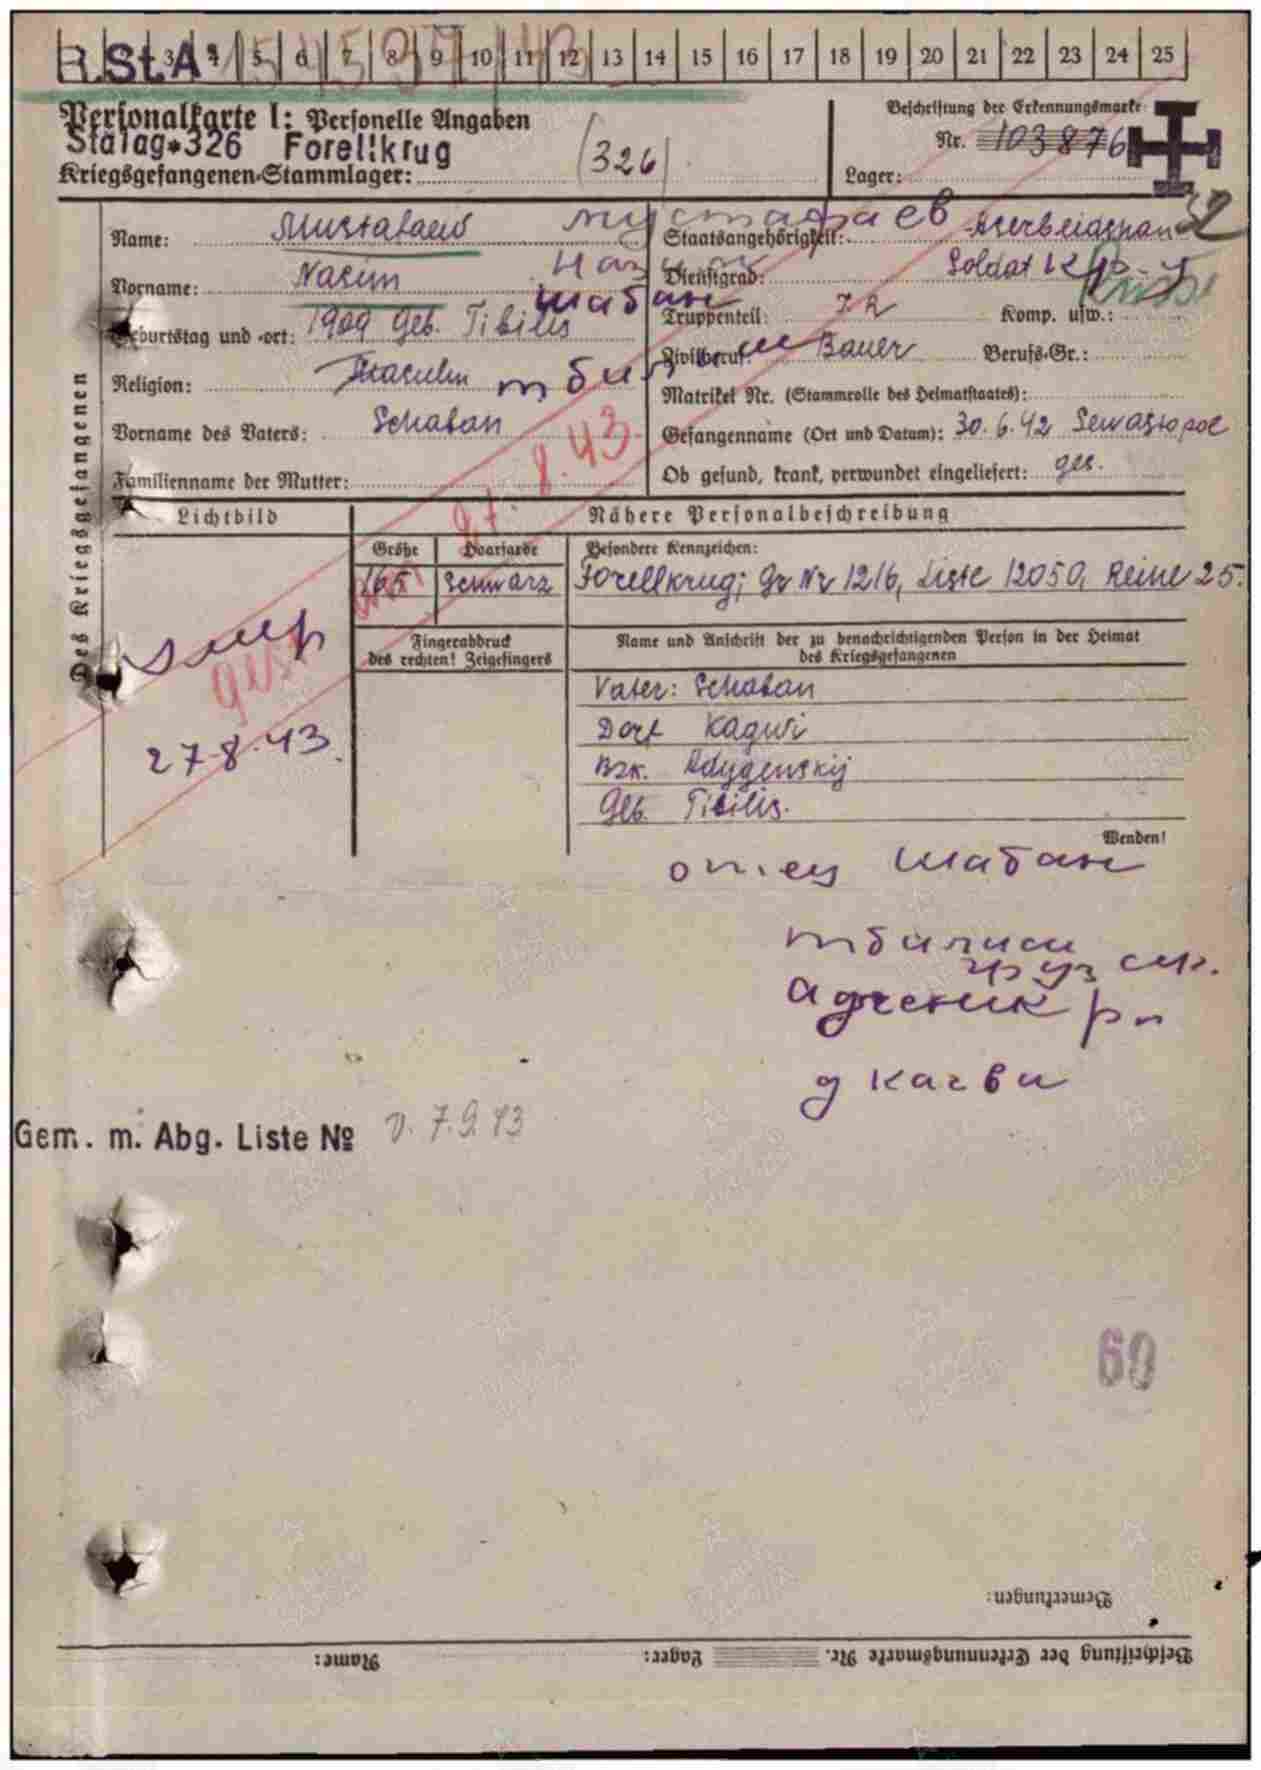 R.St.A. 3 4 5 6 7 8 9 10 11 12 13 14 15 16 17 18 19 20 21 22 23 24 25
Personalkarte I: Personelle Angaben
Stalag 326 Forellkrug
Kriegsgefangenen-Stammlager:
(326)
Beschriftung der Erkennungsmarke
Nr. 103876
Lager:
Des Kriegsgefangenen
Name: Mustafaew Мустафаев
Vorname: Nasim
Шабан
Geburtstag und -ort: 1909 Geb. Tibilis
Religion:
Vorname des Vaters: Schaban
Familienname der Mutter:
Staatsangehörigkeit: Aserbeidschan
Dienstgrad: Soldat
Truppenteil: I R Komp. usw.:
Zivilberuf: Bauer Berufs-Gr.:
Matrikel Nr. (Stammrolle des Heimatstaates):
Gefangenname (Ort und Datum): 30.6.42 Sewastopol
Ob gesund, krank, verwundet eingeliefert: ges.
Lichtbild
Nähere Personalbeschreibung
Größe Haarfarbe Besondere Kennzeichen:
165 schwarz Forellkrug; Gr Nr 1216, Liste 12050, Reihe 25.
Fingerabdruck
des rechten! Zeigefingers
Name und Anschrift der zu benachrichtigenden Person in der Heimat
des Kriegsgefangenen
Vater: Schaban
Dorf Kagwi
Adygenskij
Geb. Tibilis.
Wenden!
27.8.43
gest.
умер
27-8-43.
отец Шабан
тбилиси
груз сср.
д Кагви
Gem. m. Abg. Liste № v. 7.9.43
60
Bemerkungen:
Beschriftung der Erkennungsmarke Nr. Lager: Name: